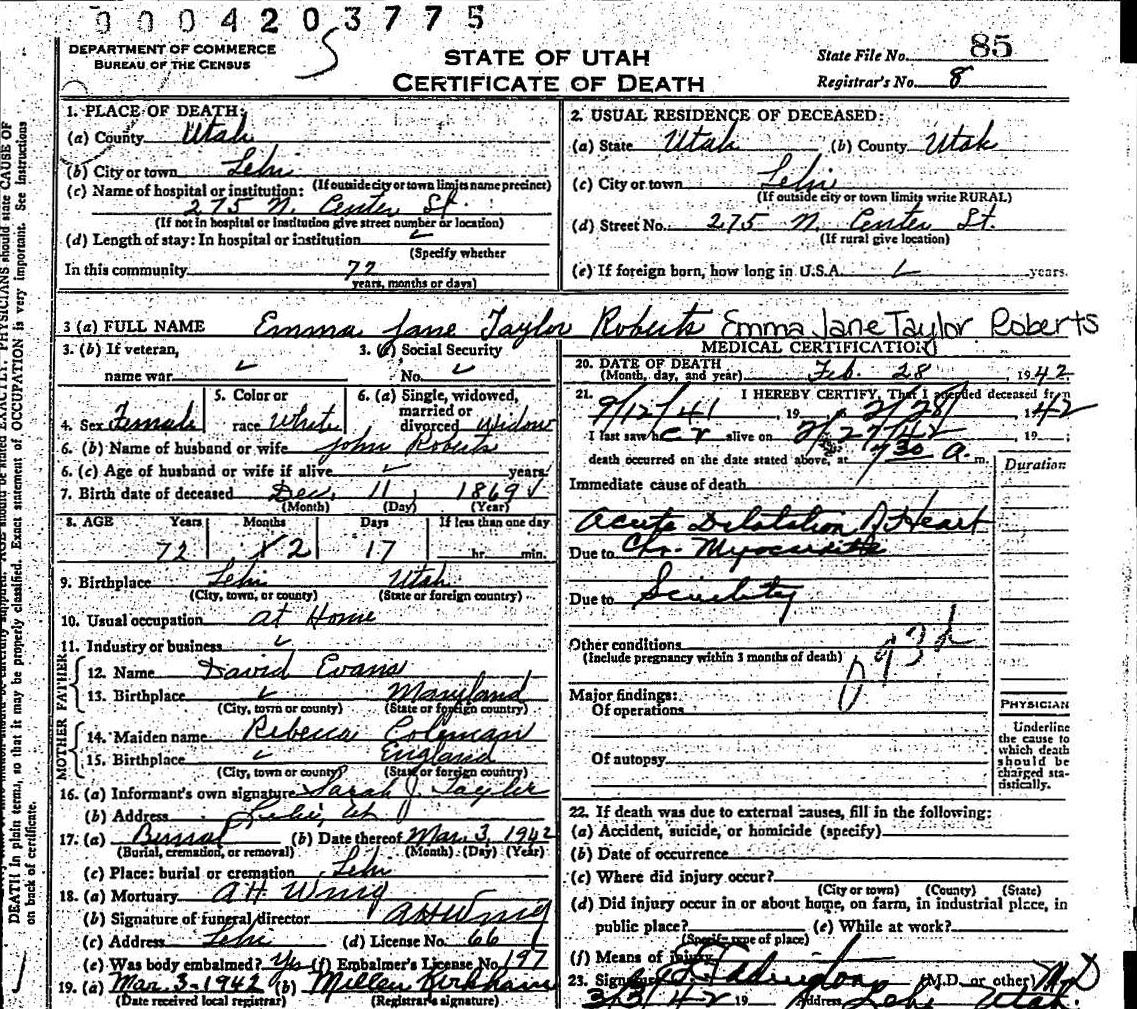 0004203775
DEPARTMENT OF COMMERCE
BUREAU OF THE CENSUS
STATE OF UTAH
CERTIFICATE OF DEATH
State File No. 85
Registrar's No. 8
1. PLACE OF DEATH:
(a) County Utah
(b) City or town Lehi
(If outside city or town limits name precinct)
(c) Name of hospital or institution:
275 N. Center St.
(If not in hospital or institution give street number or location)
(d) Length of stay: In hospital or institution
(Specify whether
In this community 72
years, months or days)
2. USUAL RESIDENCE OF DECEASED:
(a) State Utah (b) County Utah
(c) City or town Lehi
(If outside city or town limits write RURAL)
(d) Street No. 275 N. Center St.
(If rural give location)
(e) If foreign born, how long in U.S.A. years.
3 (a) FULL NAME Emma Jane Taylor Roberts Emma Jane Taylor Roberts
3. (b) If veteran,
name war
3. (c) Social Security
No.
4. Sex Female
5. Color or
race White
6. (a) Single, widowed,
married or
divorced Widow
6. (b) Name of husband or wife John Roberts
6. (c) Age of husband or wife if alive years
7. Birth date of deceased Dec. 11, 1869
(Month) (Day) (Year)
8. AGE Years Months Days If less than one day
72 2 17 hr. min.
9. Birthplace Lehi Utah
(City, town, or county) (State or foreign country)
10. Usual occupation at Home
11. Industry or business
FATHER
12. Name David Evans
13. Birthplace Maryland
(City, town or county) (State or foreign country)
MOTHER
14. Maiden name Rebecca Coleman
15. Birthplace England
(City, town or county) (State or foreign country)
16. (a) Informant's own signature Sarah J. Taylor
(b) Address Lehi, Ut
17. (a) Burial (b) Date thereof Mar. 3, 1942
(Burial, cremation, or removal) (Month) (Day) (Year)
(c) Place: burial or cremation Lehi
18. (a) Mortuary AH Wing
(b) Signature of funeral director AH Wing
(c) Address Lehi (d) License No. 66
(e) Was body embalmed? Yes (f) Embalmer's License No. 197
19. (a) Mar. 3-1942 (b) Kirkham
(Date received local registrar) (Registrar's signature)
MEDICAL CERTIFICATION
20. DATE OF DEATH
(Month, day, and year) Feb. 28, 1942
21. I HEREBY CERTIFY, That I attended deceased from
9/12/41, 19 to 2/28/, 1942
I last saw her alive on 2/27/42, 19 ;
death occurred on the date stated above, at 7 30 A. m.
Duration
Immediate cause of death
Acute Dilatation of Heart
Due to Chr. Myocarditis
Due to Senility
Other conditions
(Include pregnancy within 3 months of death)
Major findings:
Of operations
Of autopsy
PHYSICIAN
Underline
the cause to
which death
should be
charged sta-
tistically.
22. If death was due to external causes, fill in the following:
(a) Accident, suicide, or homicide (specify)
(b) Date of occurrence
(c) Where did injury occur?
(City or town) (County) (State)
(d) Did injury occur in or about home, on farm, in industrial place, in
public place? (e) While at work?
(Specify type of place)
(f) Means of injury
23. Signature (M.D. or other) MD
3/3/42 19 Address Lehi Utah.
PHYSICIANS should state CAUSE OF
DEATH in plain terms, so that it may be properly classified. Exact statement of OCCUPATION is very important. See instructions
on back of certificate.